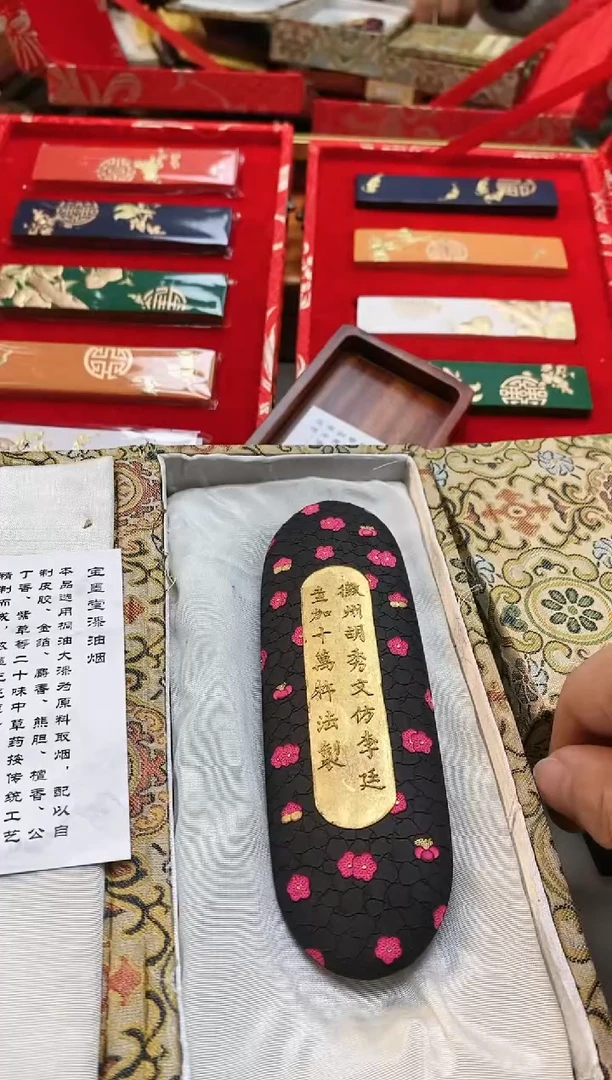 宝墨堂漆油烟
本品选用桐油大漆为原料取烟，配以自
制皮胶、金箔、麝香、熊胆、檀香、公
丁香、紫草等二十味中草药按传统工艺
精制而成，
徽州胡秀文仿李廷
珪加十萬杵法製